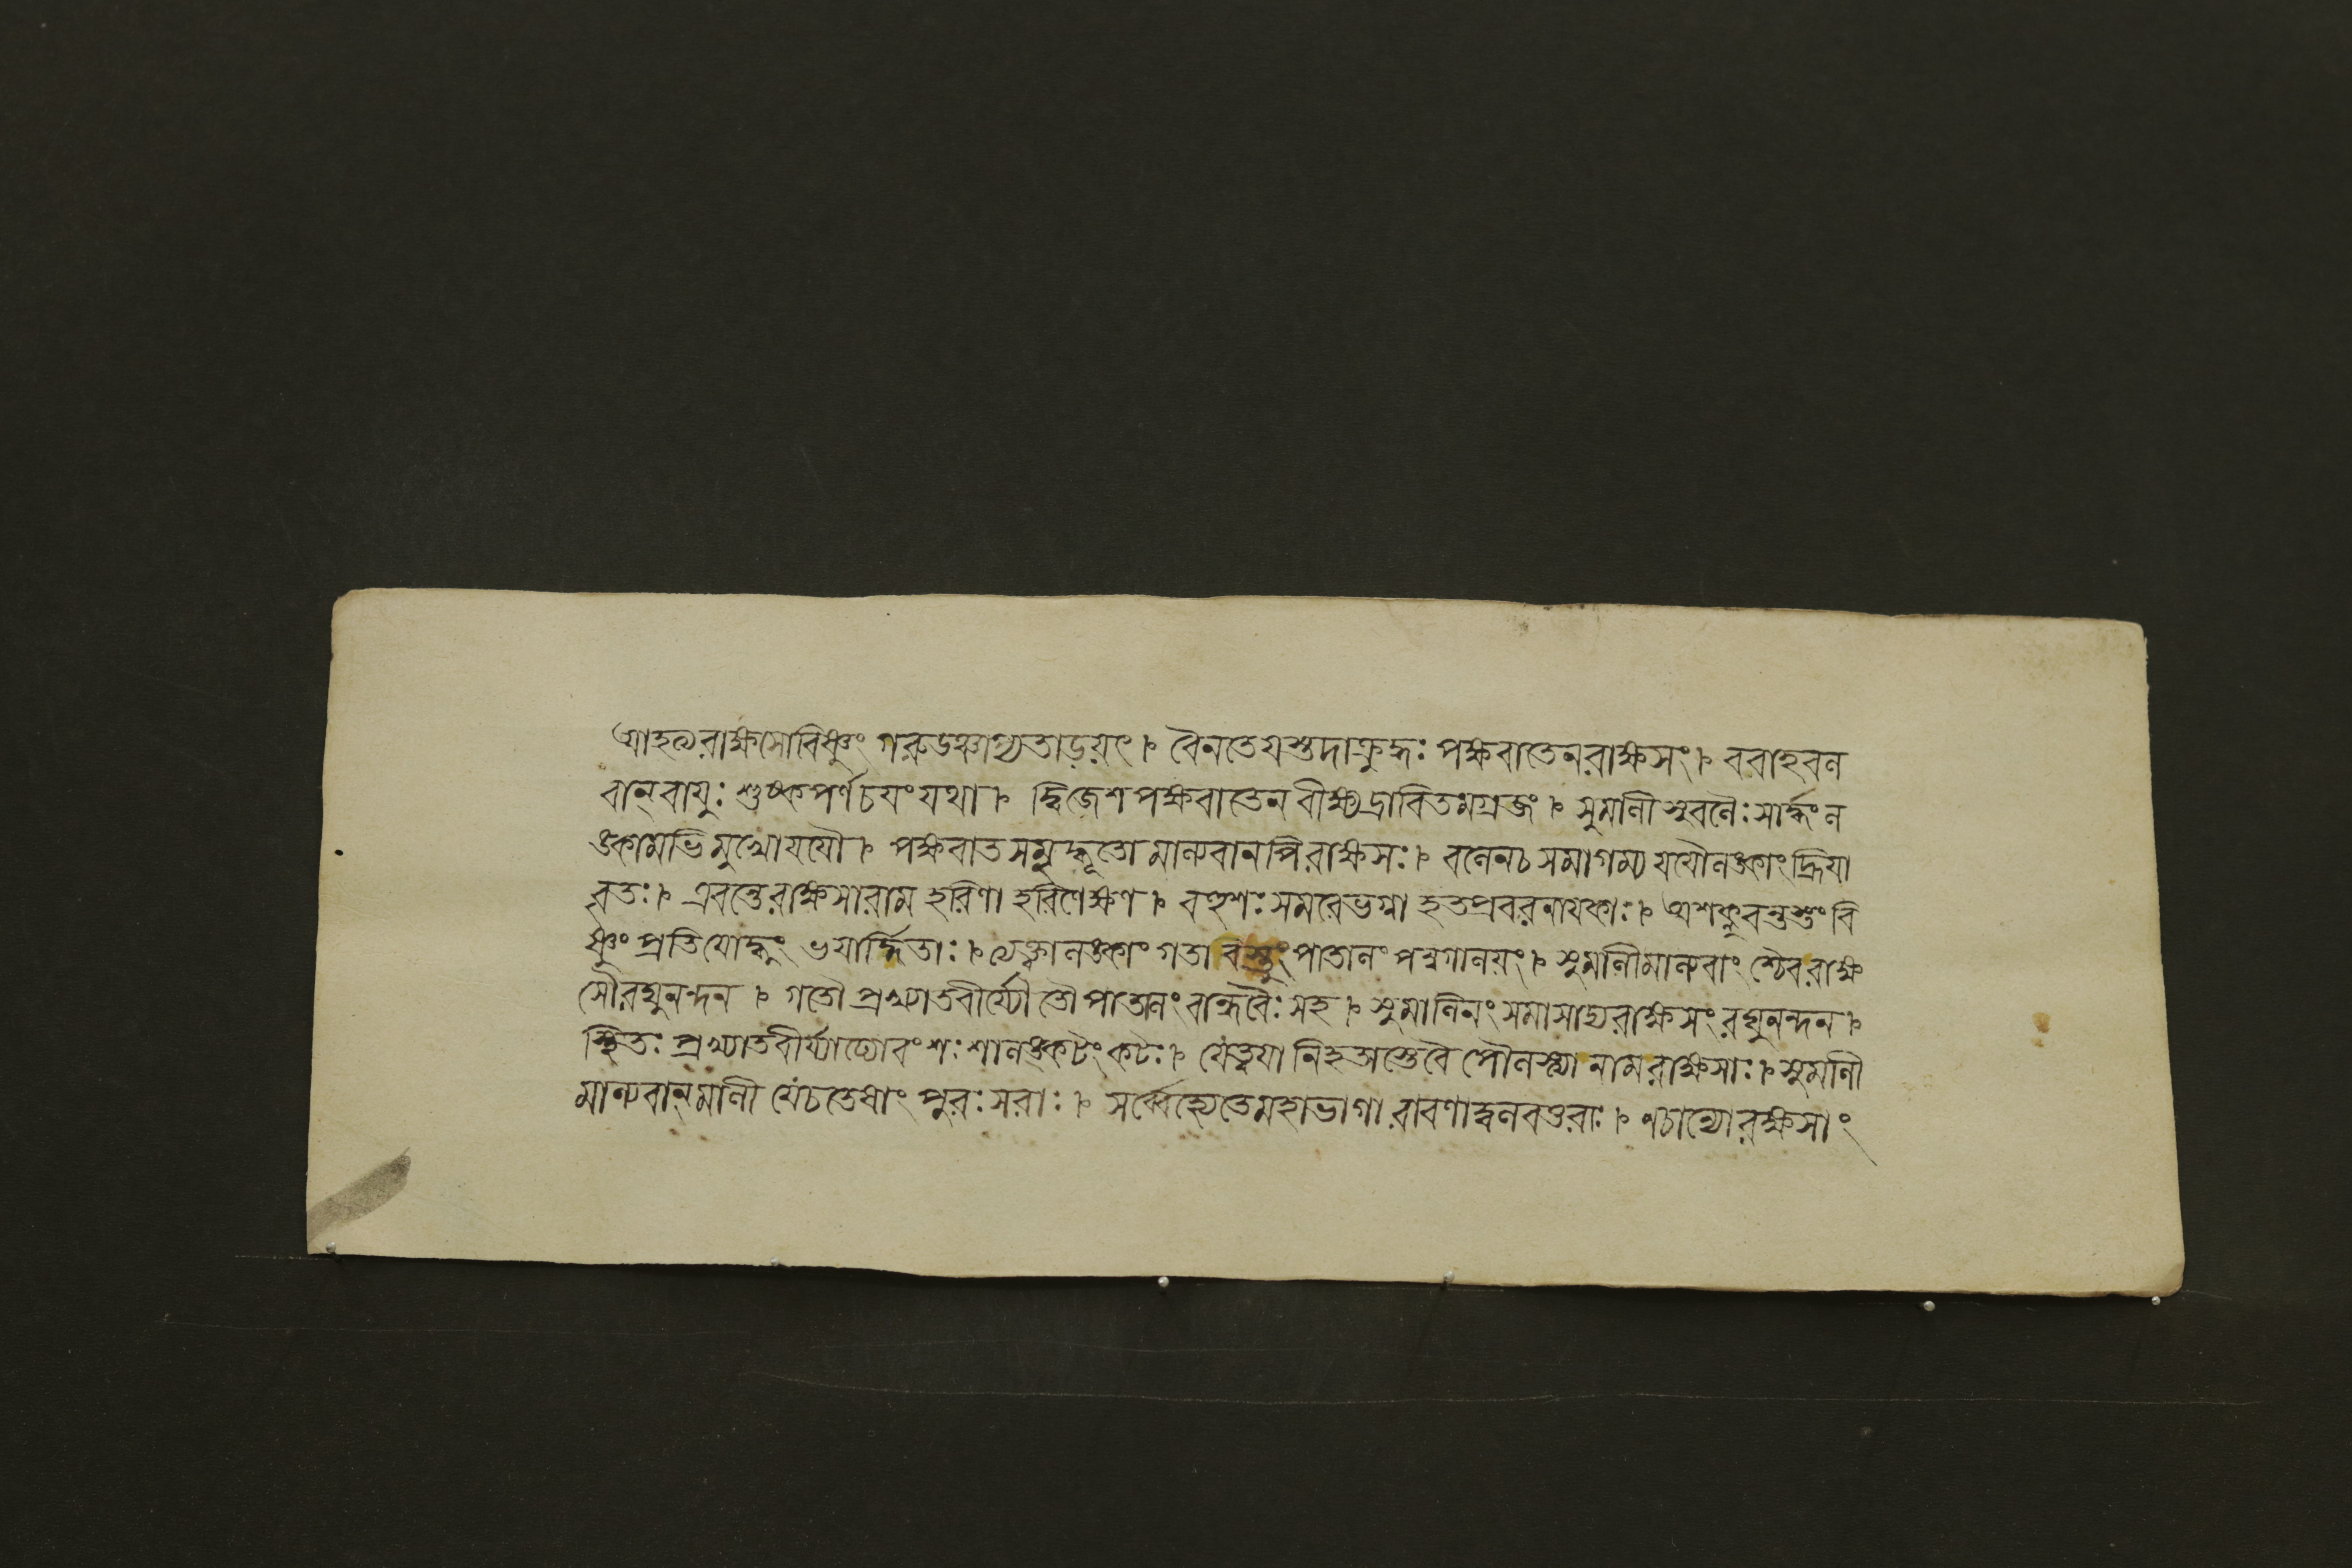 আহত্য রাক্ষসো বিষ্ণুং গরুডঞ্চাপ্যতাড়য়ৎ। বৈনতেয়স্তদাক্রুদ্ধঃ পক্ষবাতেন রাক্ষসং। ববাহ বল
বান্ বায়ুঃ শুষ্কপর্ণচয়ং যথা। দ্বিজেশ পক্ষবাতেন বীক্ষ্য দ্রাবিতমগ্রজং। সুমালী সুবলৈঃ সার্দ্ধং ল
ঙ্কামভিমুখো যযৌ। পক্ষবাত সমুদ্ধূতো মাল্যবানপি রাক্ষসঃ। বলেন চ সমাগম্য যযৌ লঙ্কাং হ্রিয়া
বৃতঃ। এবন্তে রাক্ষসা রাম হরিণা হরিণেক্ষণ। বহুশঃ সমরে ভগ্না হতপ্রবরনায়কাঃ। অশক্নুবন্তস্তং বি
ষ্ণুং প্রতিযোদ্ধুং ভয়ার্দ্দিতাঃ। ত্যক্ত্বা লঙ্কাং গতা বস্তুং পাতালং পন্নগালয়ং। সুমালীমাল্যবাংশ্চৈব রাক্ষ
সৌ রঘুনন্দন। গতৌ প্রখ্যাতবীর্য্যৌ তৌ পাতালং বান্ধবৈঃ সহ। সুমালিনং সমাসাদ্য রাক্ষসং রঘুনন্দন।
স্থিতঃ প্রখ্যাতবীর্য্যাঢ্যো বংশঃ শালঙ্কটংকটঃ। যে ত্বয়া নিহতাস্তে বৈ পৌলস্ত্যা নাম রাক্ষসাঃ। সুমালী
মাল্যবান্ মালী যে চ তেষাং পুরঃসরাঃ। সর্ব্বে হ্যেতে মহাভাগা রাবণাদ্বলবত্তরাঃ। ন চান্যো রক্ষসাং